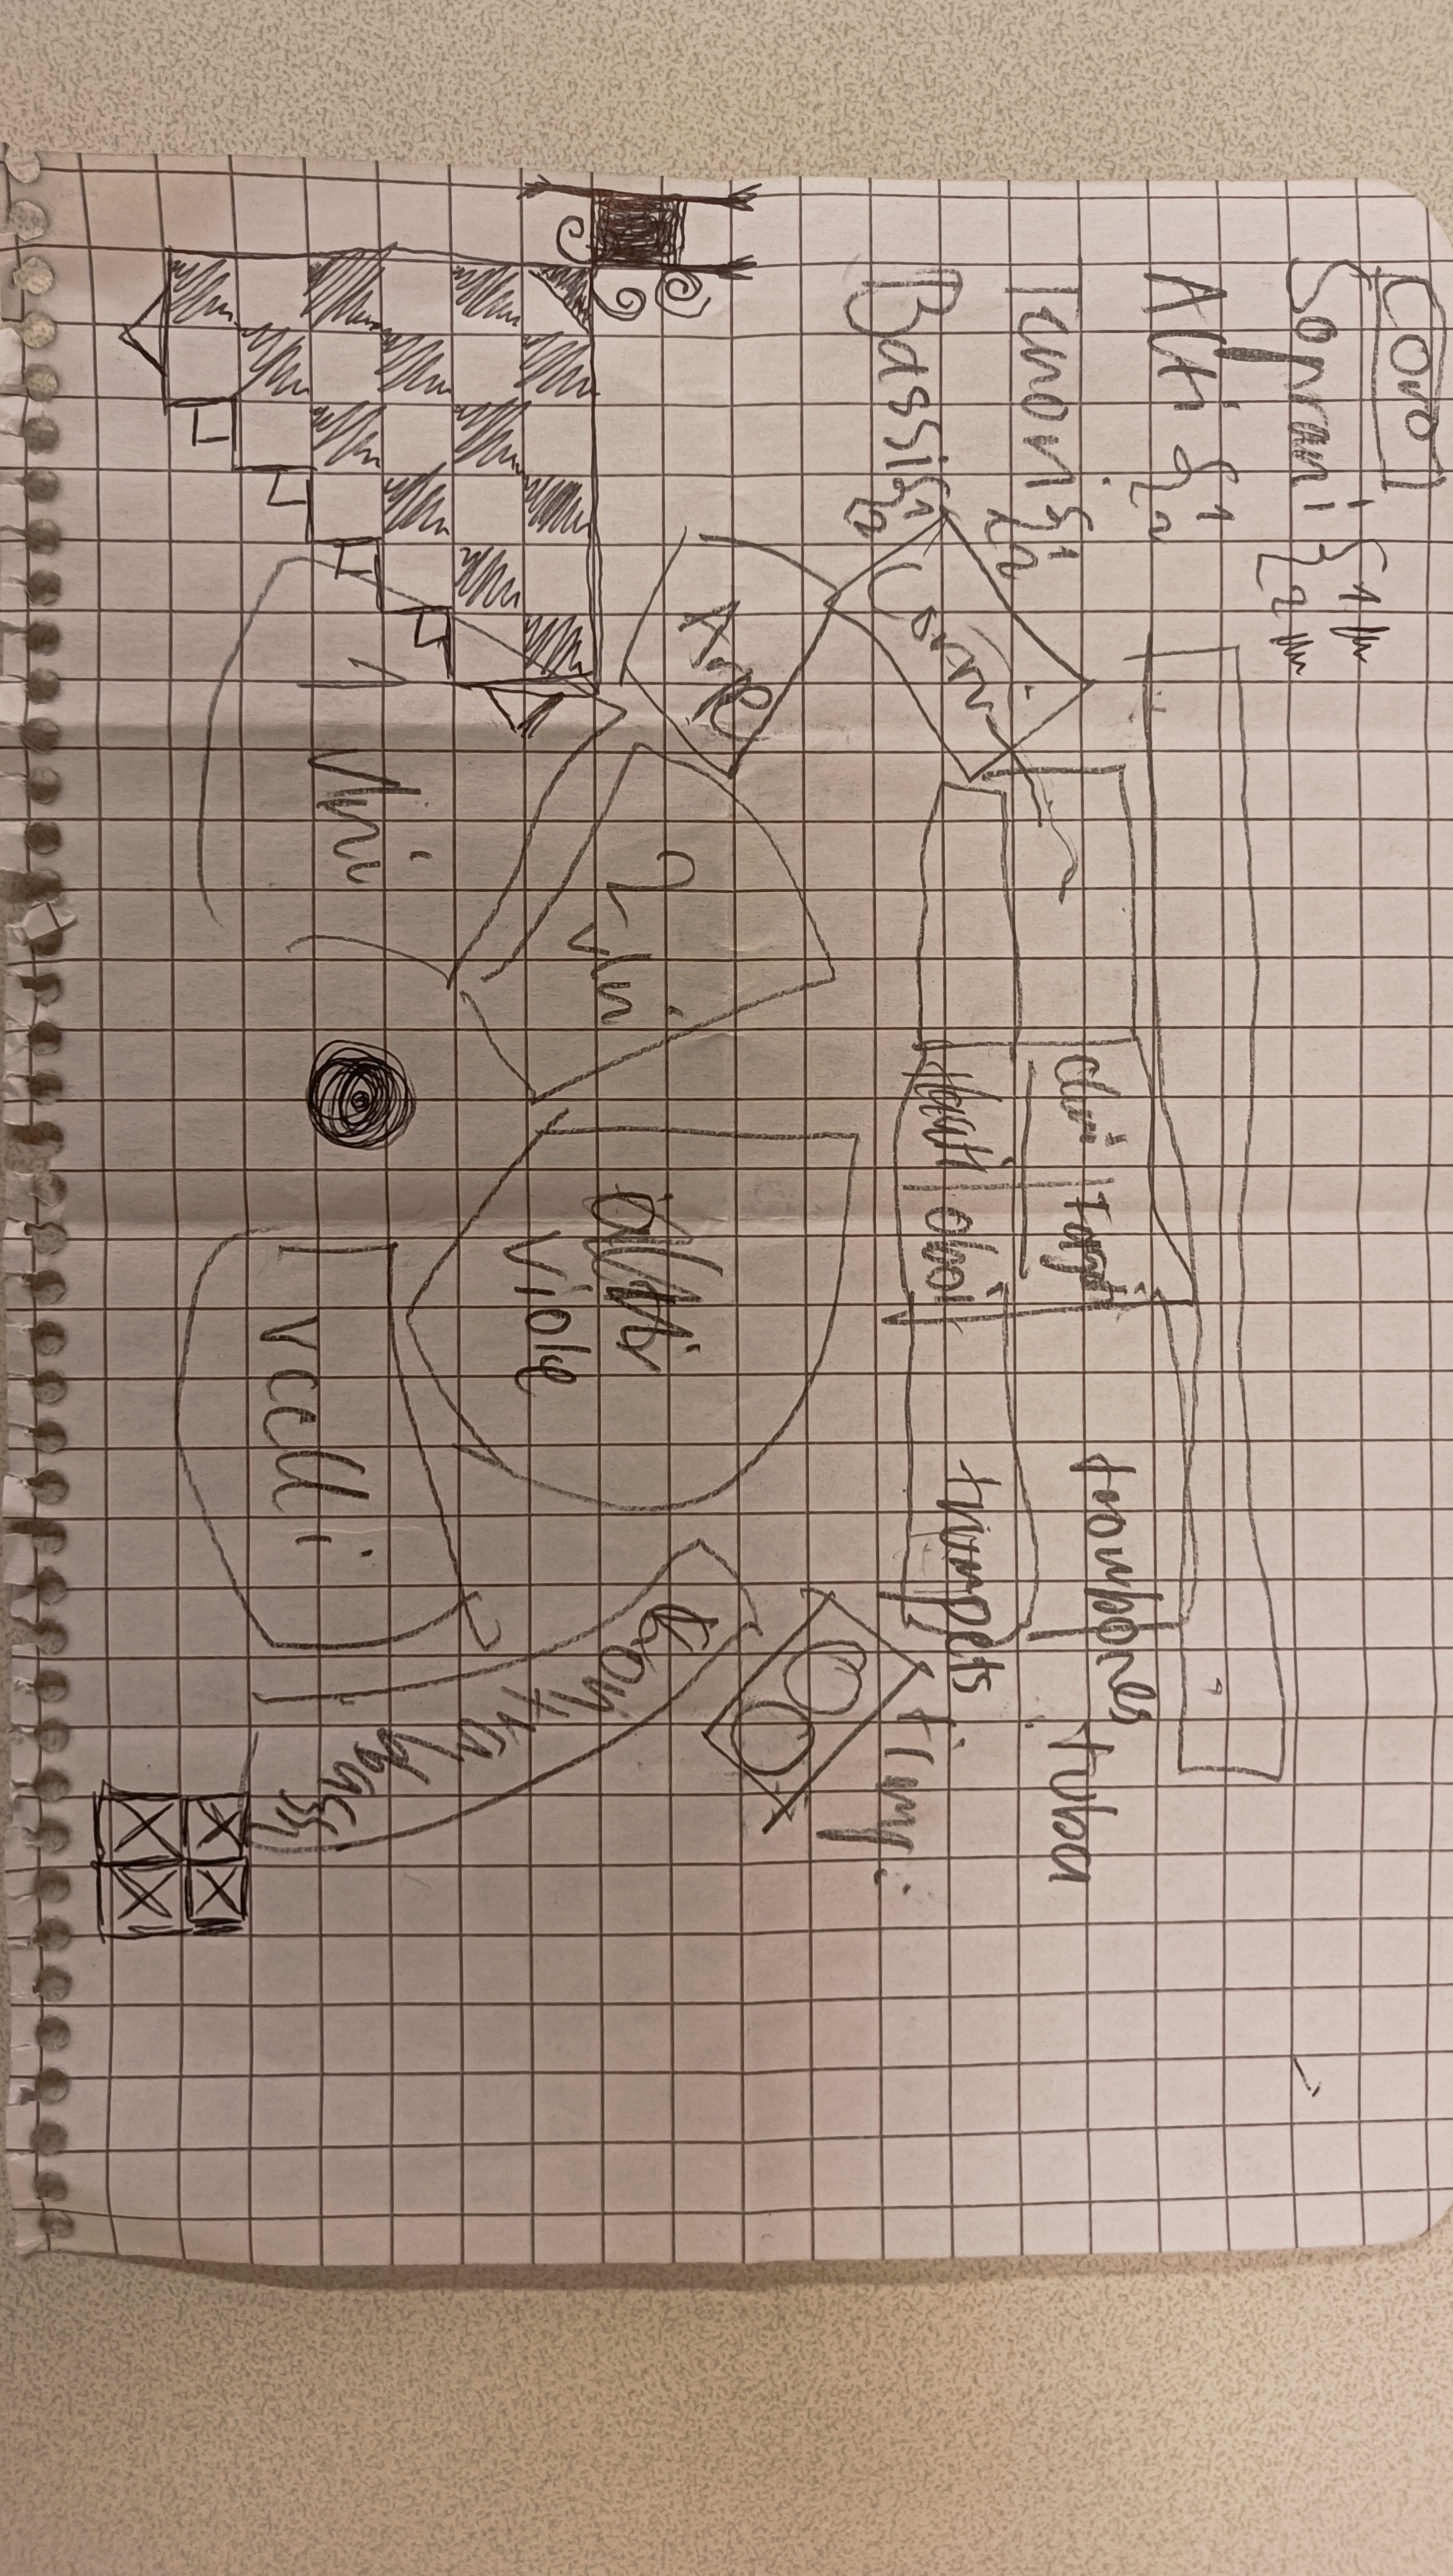 Coro
Soprani {1
{2
Alti {1
{2
Tenori {1
{2
Bassi {1
{2
Corni
Arpe
Clari Fagotti
flauti oboi
trombones tuba
trumpets
timp.
I Vlni
2 vlni
viole
I vcelli
Contrabassi